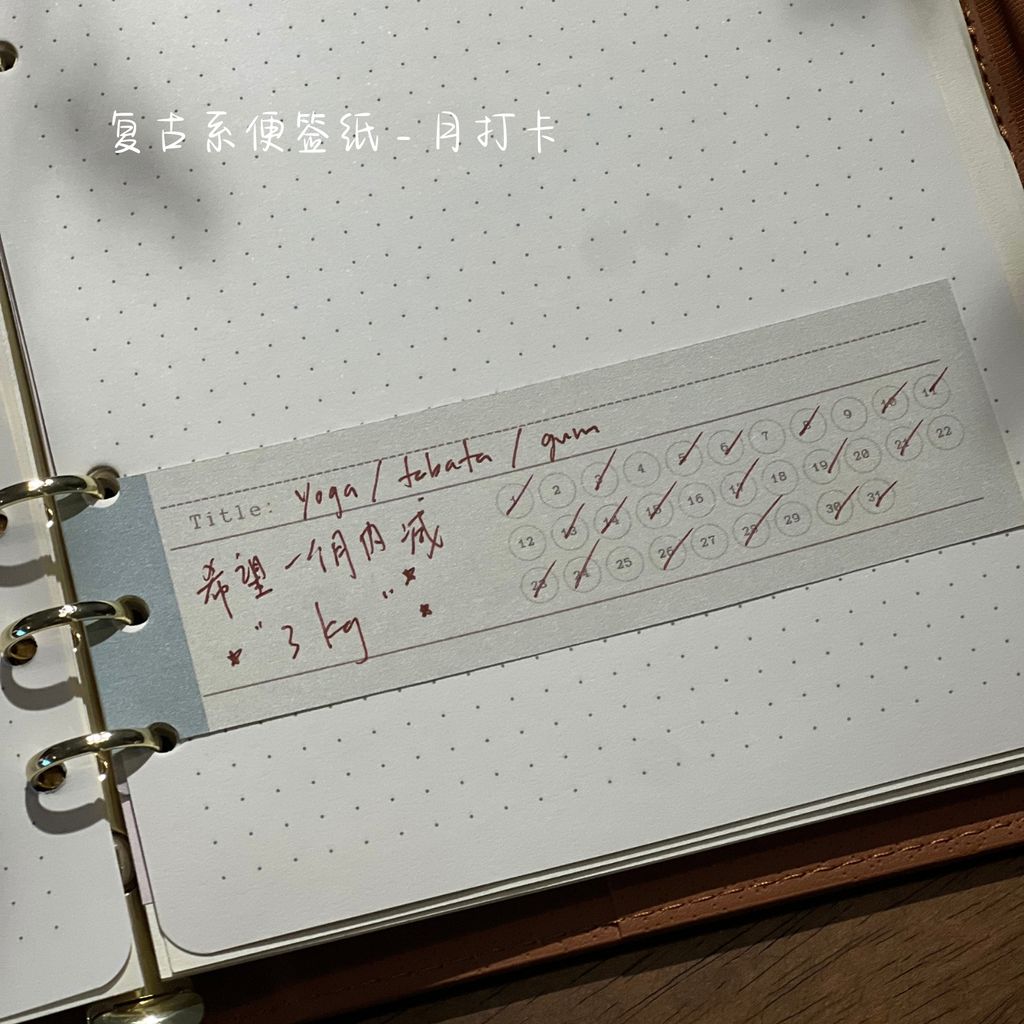 复古系便签纸-月打卡
Title: yoga / tabata / gum
希望一个月内减
"3 kg"
1 2 3 4 5 6 7 8 9 10 11
12 13 14 15 16 17 18 19 20 21 22
23 24 25 26 27 28 29 30 31